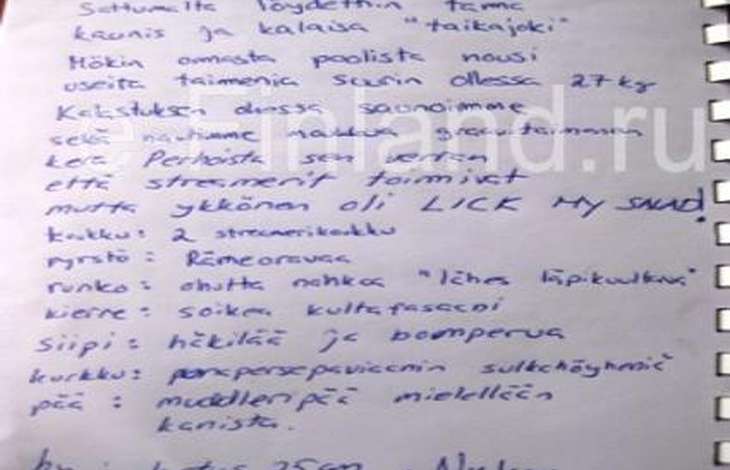 Sattumalta löydettiin tämä
kaunis ja kalaisa "taikajoki"
Mökin omasta poolista nousi
useita taimenia suurin ollessa 27 kg
Kalastuksen ohessa saunoimme
sekä nautimme makkua graavitaimenen
kera Perhoista sen verran
että streamerit toimivat
mutta ykkönen oli LICK MY SALAD!
koukku: 2 streamerikoukku
pyrstö: Rämeoravaa
runko: ohutta nahkaa "lähes läpikuultava"
kierre: soikea kultafasaani
siipi: häkilää ja bomperua
kurkku: punapersepaviaanin sulkahöyheniä
pää: muddleripää mielellään
kanista.
25cm
e-Finland.ru